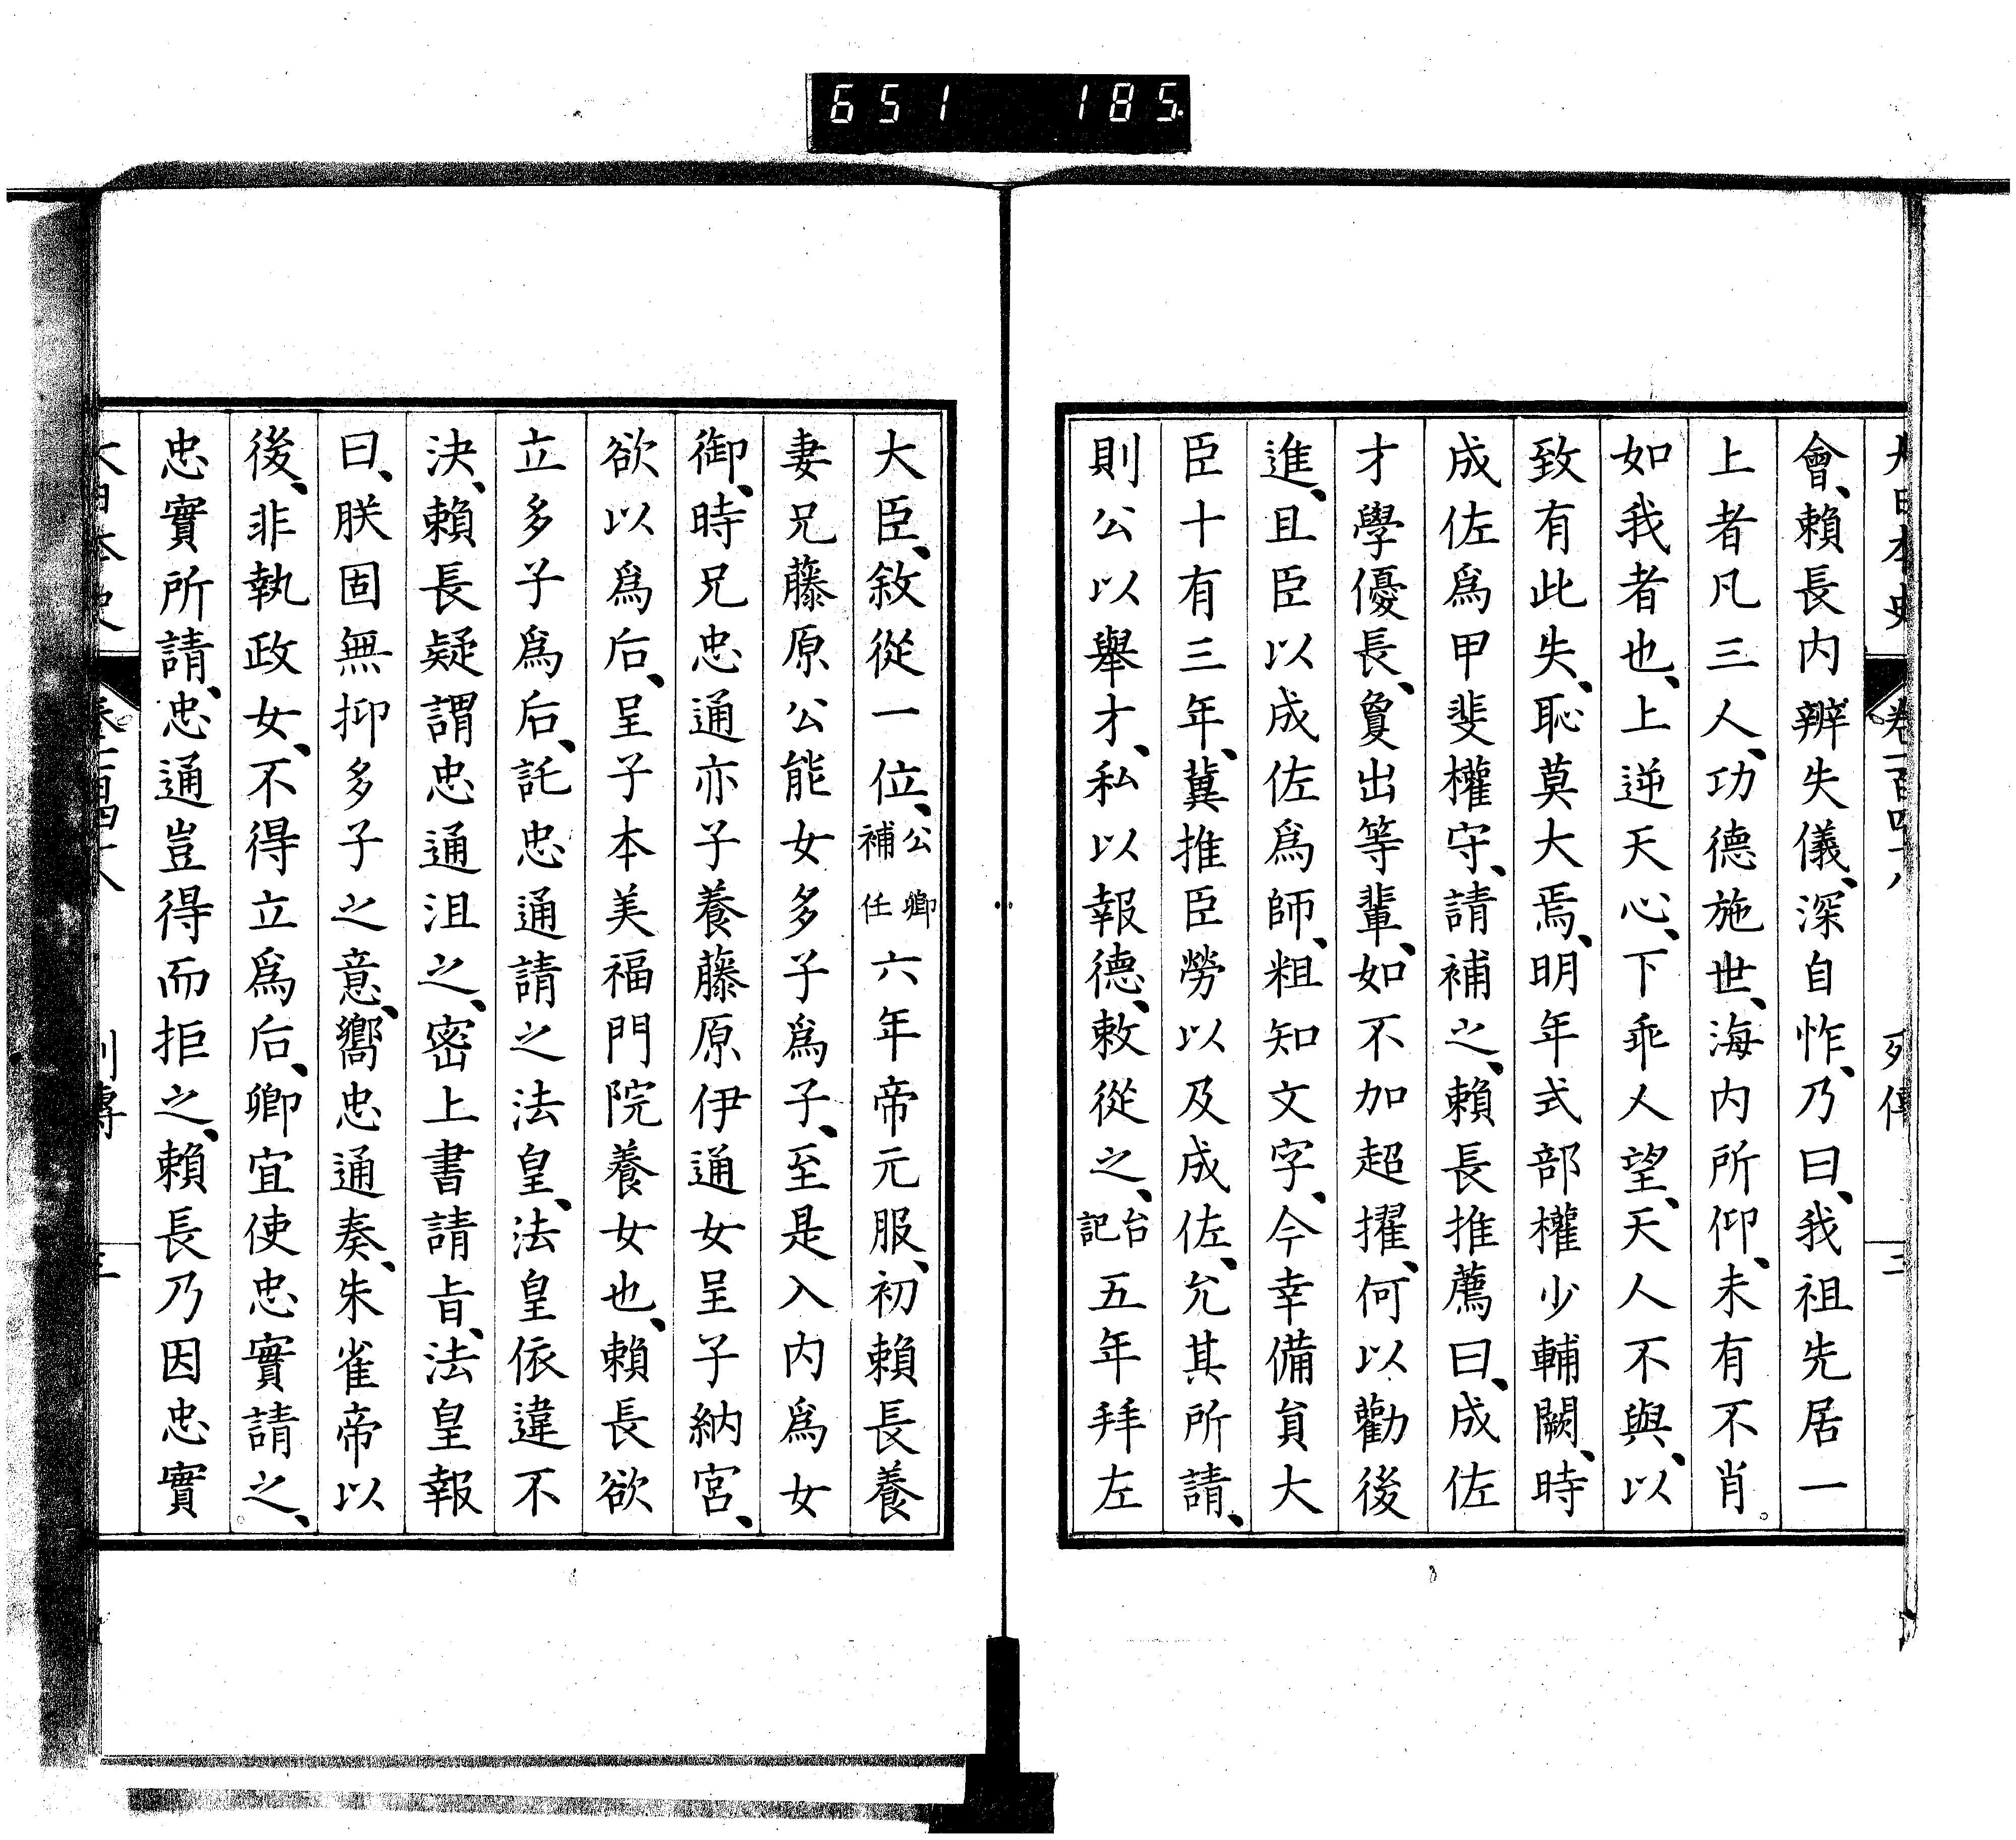 651 185
大日本史 卷一百四十八 列傳 三
會、賴長内辨失儀、深自怍、乃曰、我祖先居一
上者凡三人、功德施世、海内所仰、未有不肖
如我者也、上逆天心、下乖人望、天人不與、以
致有此失、恥莫大焉、明年式部權少輔闕、時
成佐爲甲斐權守、請補之、賴長推薦曰、成佐
才學優長、敻出等輩、如不加超擢、何以勸後
進、且臣以成佐爲師、粗知文字、今幸備員大
臣十有三年、冀推臣勞以及成佐、允其所請、
則公以舉才、私以報德、敕從之、台記五年拜左
大臣、敘從一位、公卿補任六年帝元服、初賴長養
妻兄藤原公能女多子爲子、至是入内爲女
御、時兄忠通亦子養藤原伊通女呈子納宮、
欲以爲后、呈子本美福門院養女也、賴長欲
立多子爲后、託忠通請之法皇、法皇依違不
決、賴長疑謂忠通沮之、密上書請旨、法皇報
曰、朕固無抑多子之意、嚮忠通奏、朱雀帝以
後、非執政女、不得立爲后、卿宜使忠實請之、
忠實所請、忠通豈得而拒之、賴長乃因忠實
大日本史 卷一百四十八 列傳 三